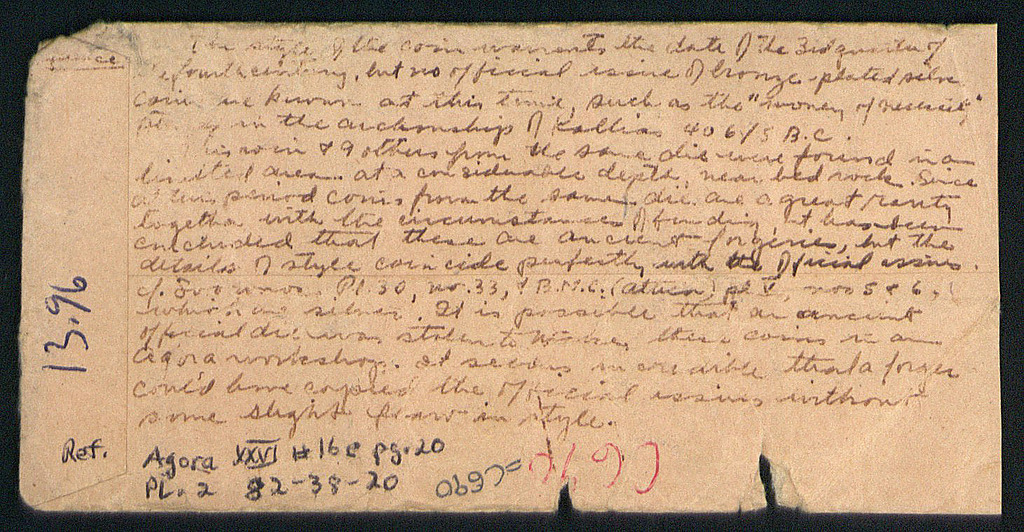 The style of the coin warrants the date of the 3rd quarter of
fourth century, but no official issue of bronze-plated silver
coins are known at this time, such as the "money of necessity"
in the archonship of Kallias 406/5 B.C.
coin & 9 others from the same die were found in a
limited area at a considerable depth, near bedrock. Since
at this period coins from the same die are a great rarity
together with the circumstances of finding, it has been
concluded that these are ancient forgeries, but the
details of style coincide perfectly with the official issues.
cf. Svoronos Pl. 30, no. 33, & B.M.C. (Attica) pl V, nos 5 & 6,
which are silver. It is possible that an ancient
official die was stolen to these coins in an
Agora workshop. It seems incredible that a forger
could have copied the official issues without
some slight flaw in style.
13.96
Ref. Agora XXVI # 16e pg. 20
PL. 2 82-38-20
=C690